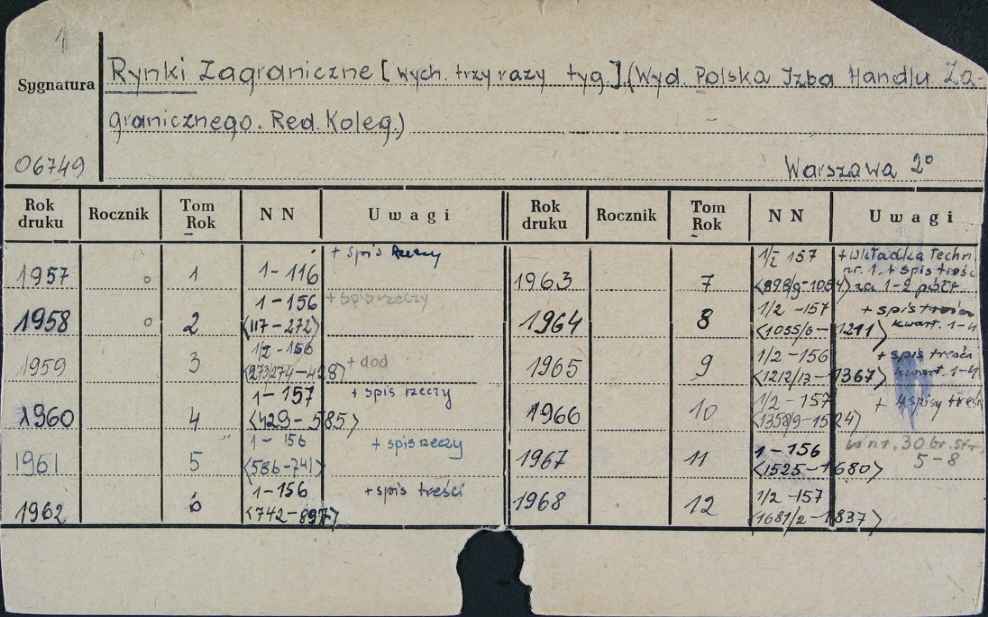 1
Sygnatura
Rynki Zagraniczne [wych. trzy razy tyg.] (Wyd. Polska Izba Handlu Za-
granicznego. Red. Koleg.)
06749
Warszawa 2°
Rok druku Rocznik Tom Rok NN Uwagi Rok druku Rocznik Tom Rok NN Uwagi
1957 1 1-116 + spis rzeczy
1958 2 1-156 <117-272> + spis rzeczy
1959 3 1/2-156 <273/274-428> + dod
1960 4 1-157 <429-585> + spis rzeczy
1961 5 1-156 <586-741> + spis rzeczy
1962 6 1-156 <742-897> + spis treści
1963 7 1/2 157 <898/9-1054> + wkładka Techn. nr. 1. + spis treśc za 1-2 półr.
1964 8 1/2-157 <1055/6-1211> + spis treści kwart. 1-4
1965 9 1/2-156 <1212/13-1367> + spis treści kwart. 1-4
1966 10 1/2-157 <1358/9-1524> + 4 spisy treśc
1967 11 1-156 <1525-1680> w nr. 30 br. str. 5-8
1968 12 1/2-157 <1681/2-1837>